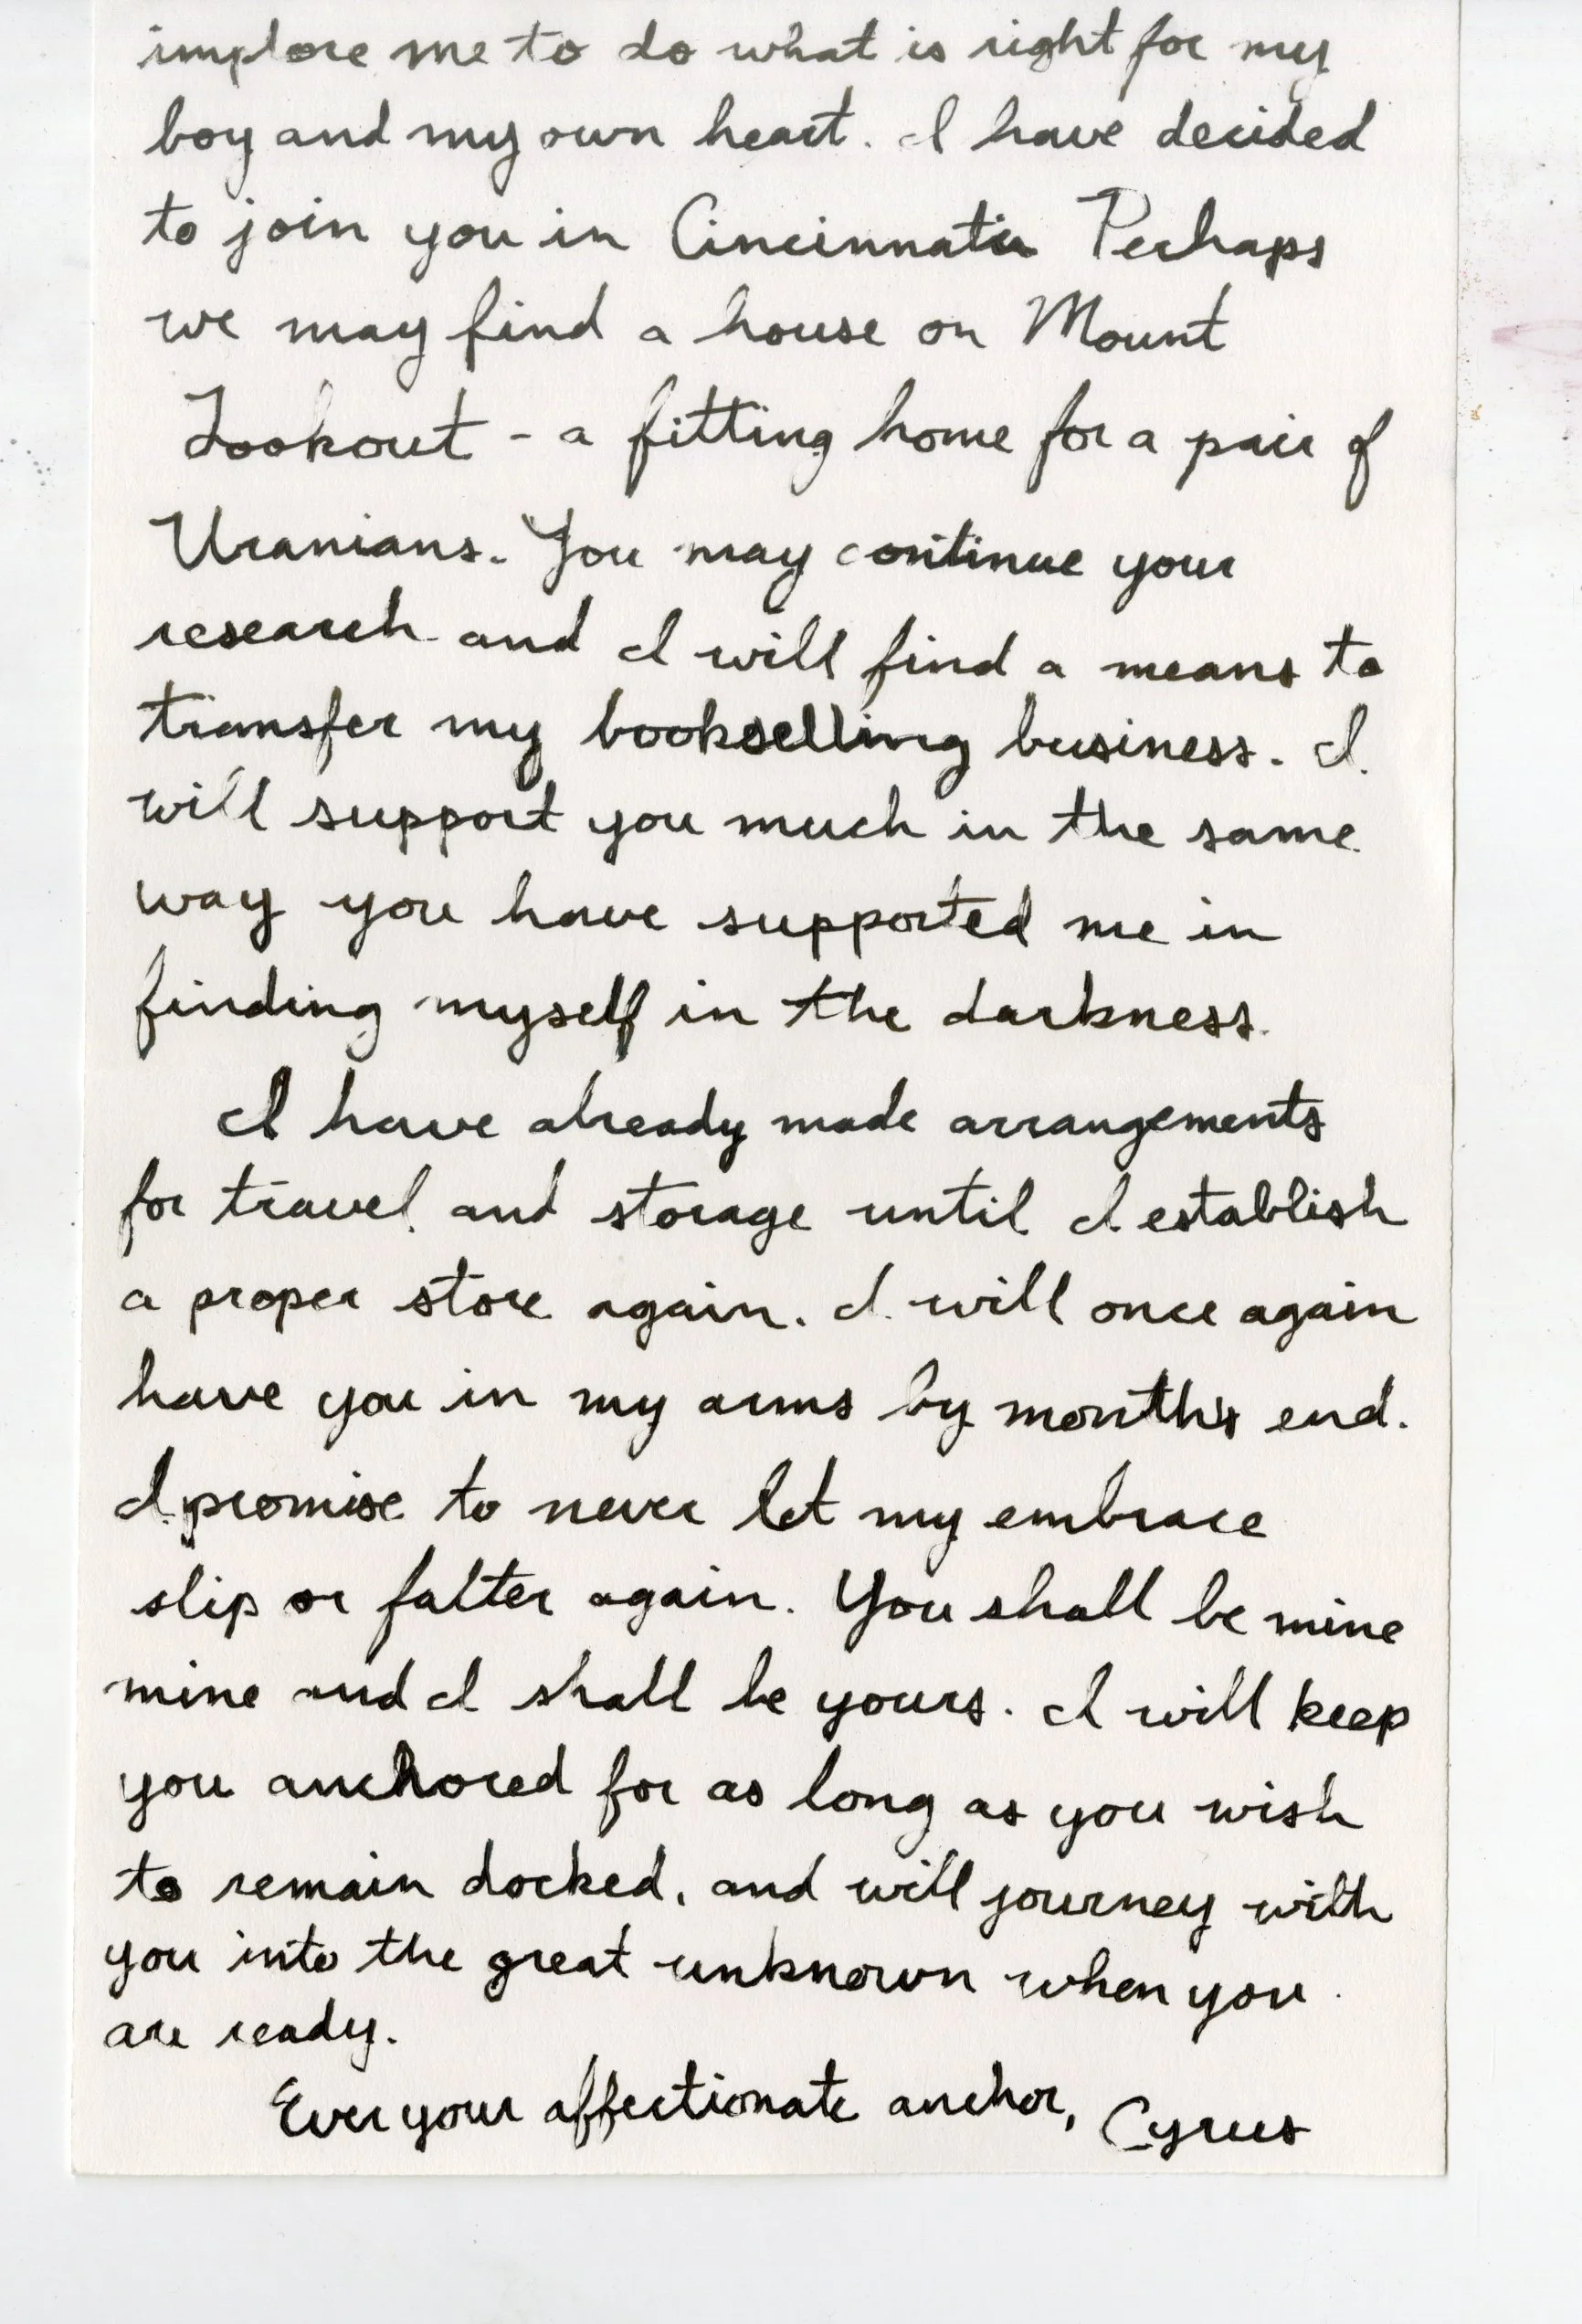 implore me to do what is right for my
boy and my own heart. I have decided
to join you in Cincinnati. Perhaps
we may find a house on Mount
Lookout - a fitting home for a pair of
Uranians. You may continue your
research and I will find a means to
transfer my bookselling business. I
will support you much in the same
way you have supported me in
finding myself in the darkness.
I have already made arrangements
for travel and storage until I establish
a proper store again. I will once again
have you in my arms by months end.
I promise to never let my embrace
slip or falter again. You shall be mine
mine and I shall be yours. I will keep
you anchored for as long as you wish
to remain docked, and will journey with
you into the great unknown when you
are ready.
Ever your affectionate anchor, Cyrus